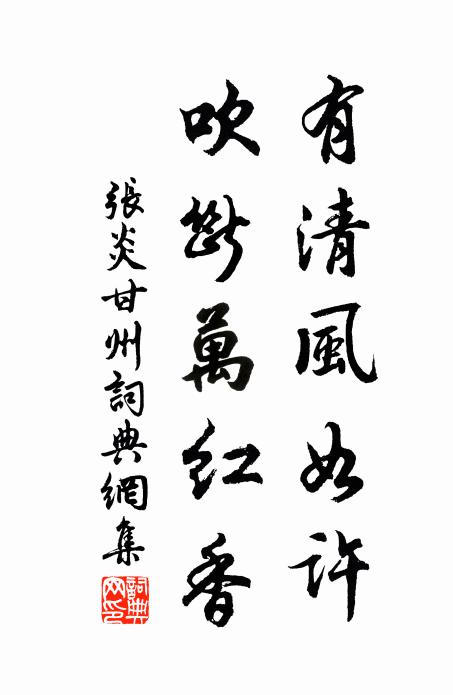 有清風如許
吹斷萬紅香
張炎甘州詞典網集
詞典網印